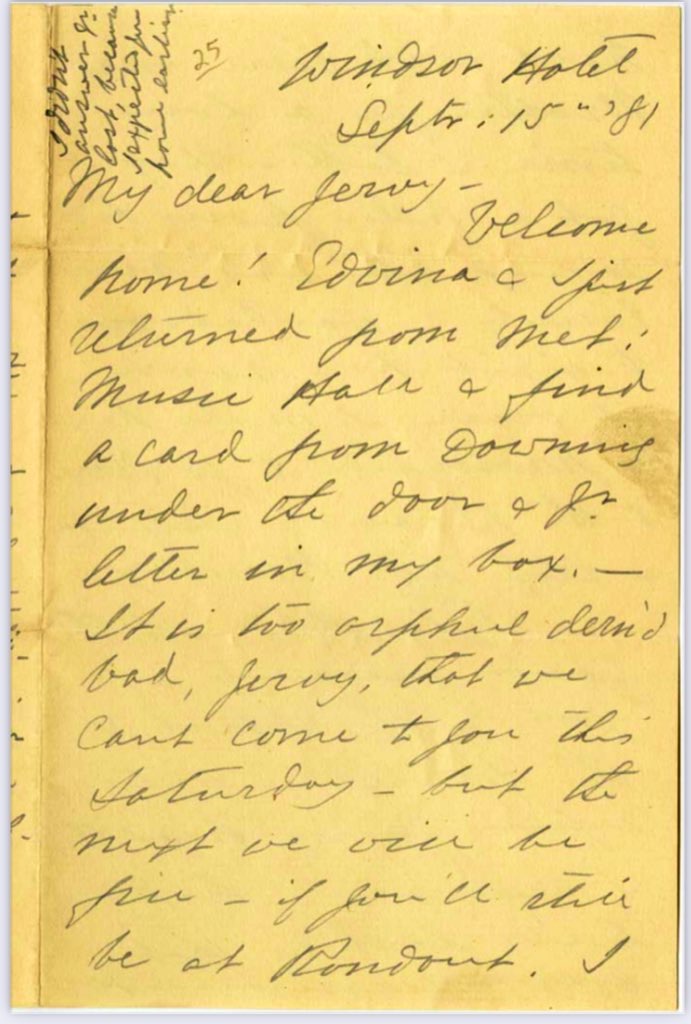 I didn't
answer yr
last, because
I expected you
home earlier
25
Windsor Hotel
Septr: 15" '81
My dear Jervy -
Welcome
home! Edvina & I just
returned from Met:
Music Hall & find
a card from Downing
under the door & yr
letter in my box. —
It is too orphul dern'd
bad, Jervy, that we
cant come to you this
Saturday - but the
next we will be
free - if you'll still
be at Rondout. I